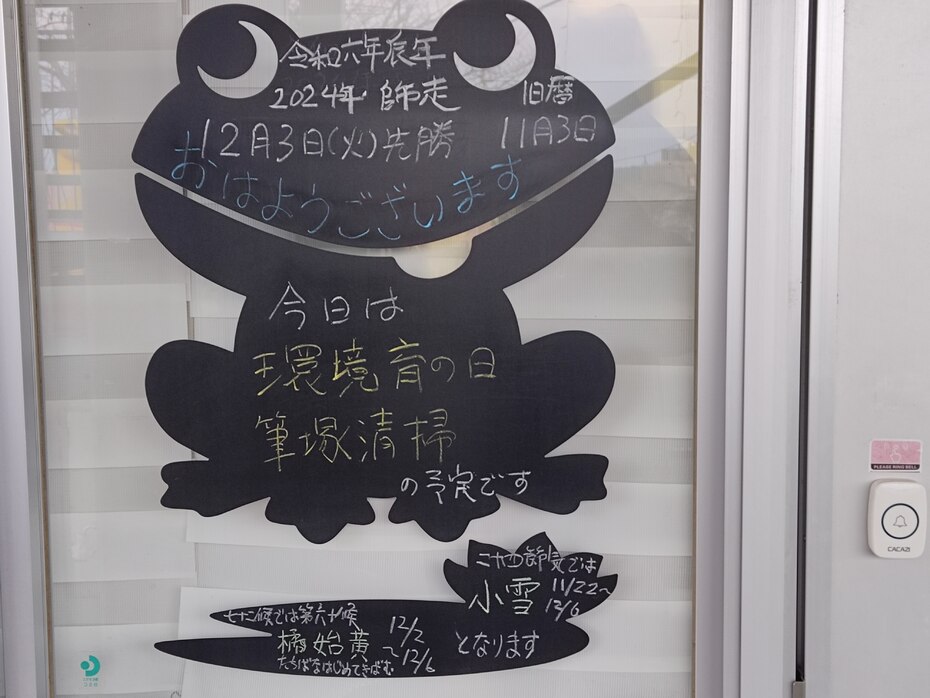 令和六年辰年
2024年 師走
旧暦
12月3日(火)先勝
11月3日
おはようございます
今日は
環境育の日
筆塚清掃
の予定です
二十四節気では
小雪 11/22～
12/6
七十二候では第六十候
橘始黄
たちばなはじめてきばむ
12/2
～12/6
となります
PLEASE RING BELL
CACAZI